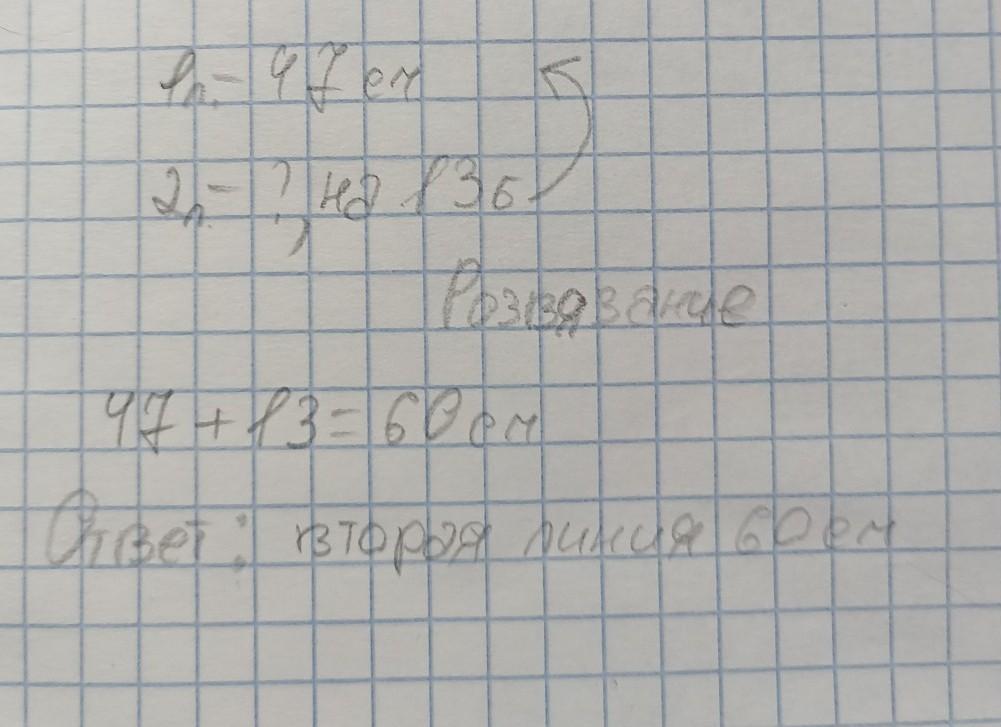 1л. - 47 см
2л. - ?, на 13 б
Розвязание
47 + 13 = 60 см
Ответ: вторая линия 60 см